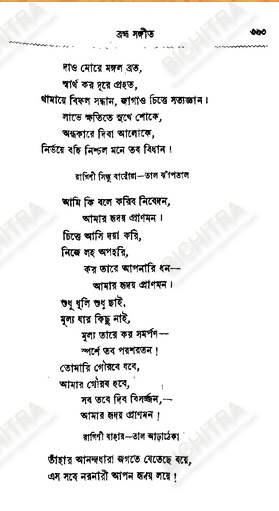 ব্রহ্ম সঙ্গীত ৩৬৩
দাও মোরে মঙ্গল ব্রত,
স্বার্থ কর দূরে প্রহত,
থামায়ে বিফল সন্ধান, জাগাও চিত্তে সত্যজ্ঞান।
লাভে ক্ষতিতে সুখে শোকে,
অন্ধকারে দিবা আলোকে,
নির্ভয়ে বহি নিশ্চল মনে তব বিধান!
রাগিণী সিন্ধু বারোঁয়া—তাল ঝাঁপতাল
আমি কি বলে করিব নিবেদন,
আমার হৃদয় প্রাণমন।
চিত্তে আসি দয়া করি,
নিজে লহ অপহরি,
কর তারে আপনারি ধন—
আমার হৃদয় প্রাণমন।
শুধু ধূলি শুধু ছাই,
মূল্য যার কিছু নাই,
মূল্য তারে কর সমর্পণ—
স্পর্শে তব পরশরতন!
তোমারি গৌরবে যবে,
আমার গৌরব হবে,
সব তবে দিব বিসর্জ্জন,—
আমার হৃদয় প্রাণমন!
রাগিণী বাহার—তাল আড়াঠেকা
তাঁহার আনন্দধারা জগতে যেতেছে বয়ে,
এস সবে নরনারী আপন হৃদয় লয়ে!
BICHITRA